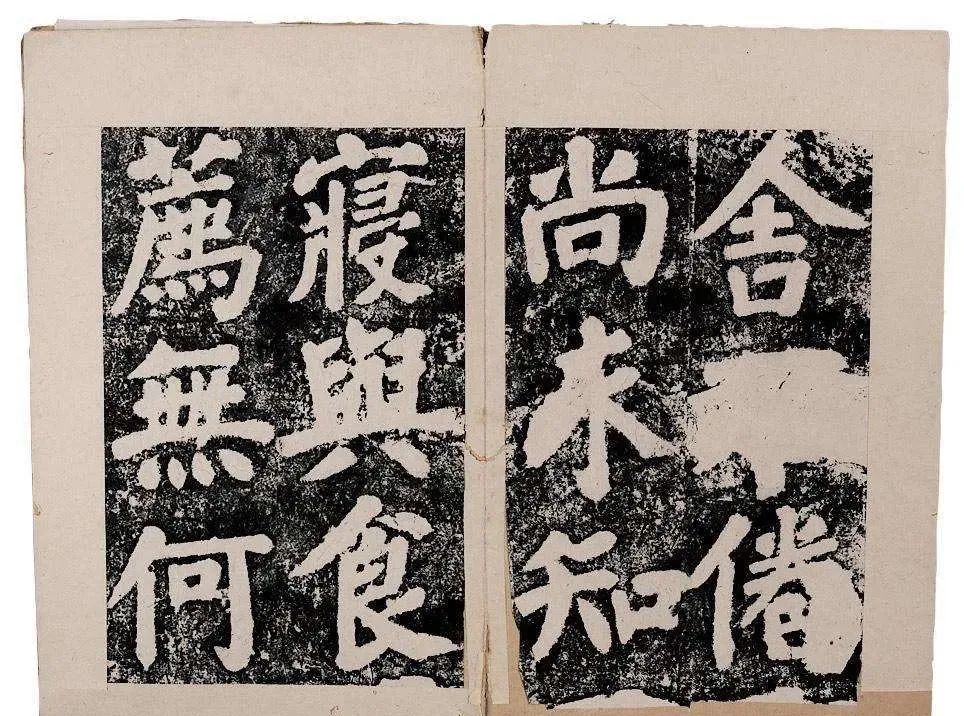 舍倦
尚未知
寢與食
薦無何